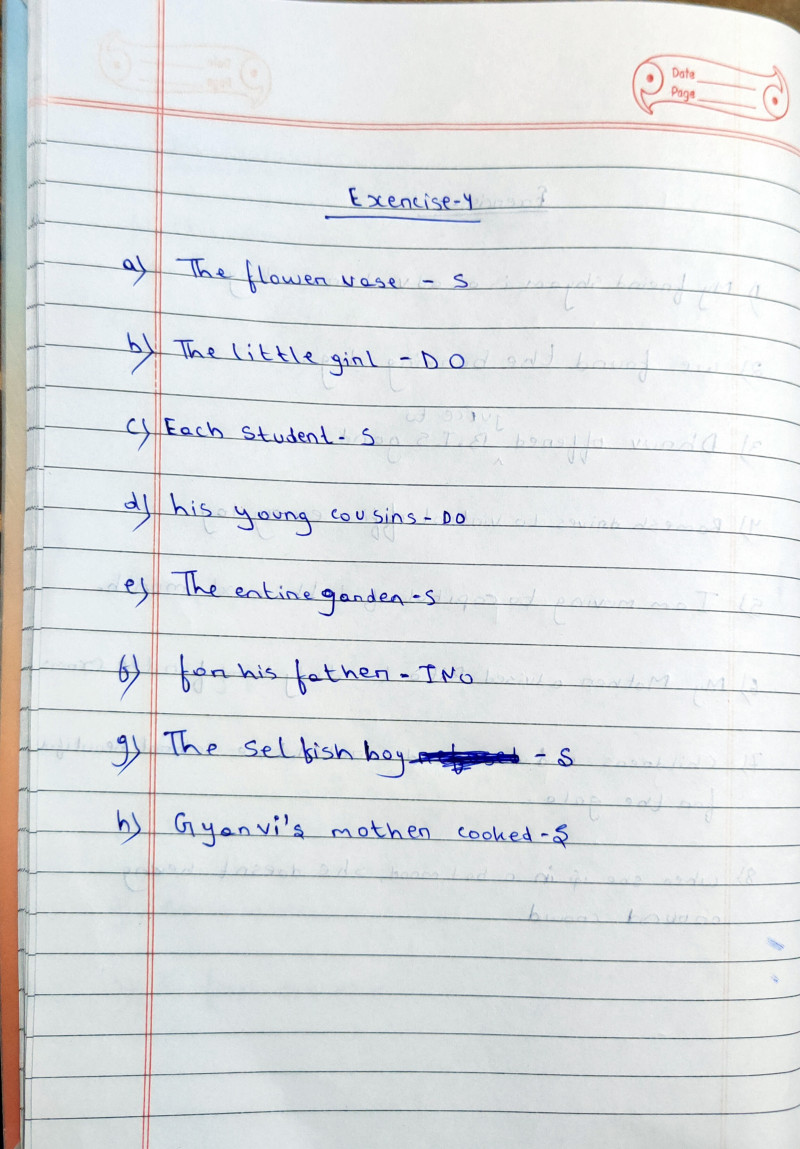 Date
Page
Exencise-4
a) The flower vase - S
b) The little girl - DO
c) Each student - S
d) his young cousins - DO
e) The entire garden - S
f) for his father - INO
g) The selfish boy - S
h) Gyanvi's mother cooked - S